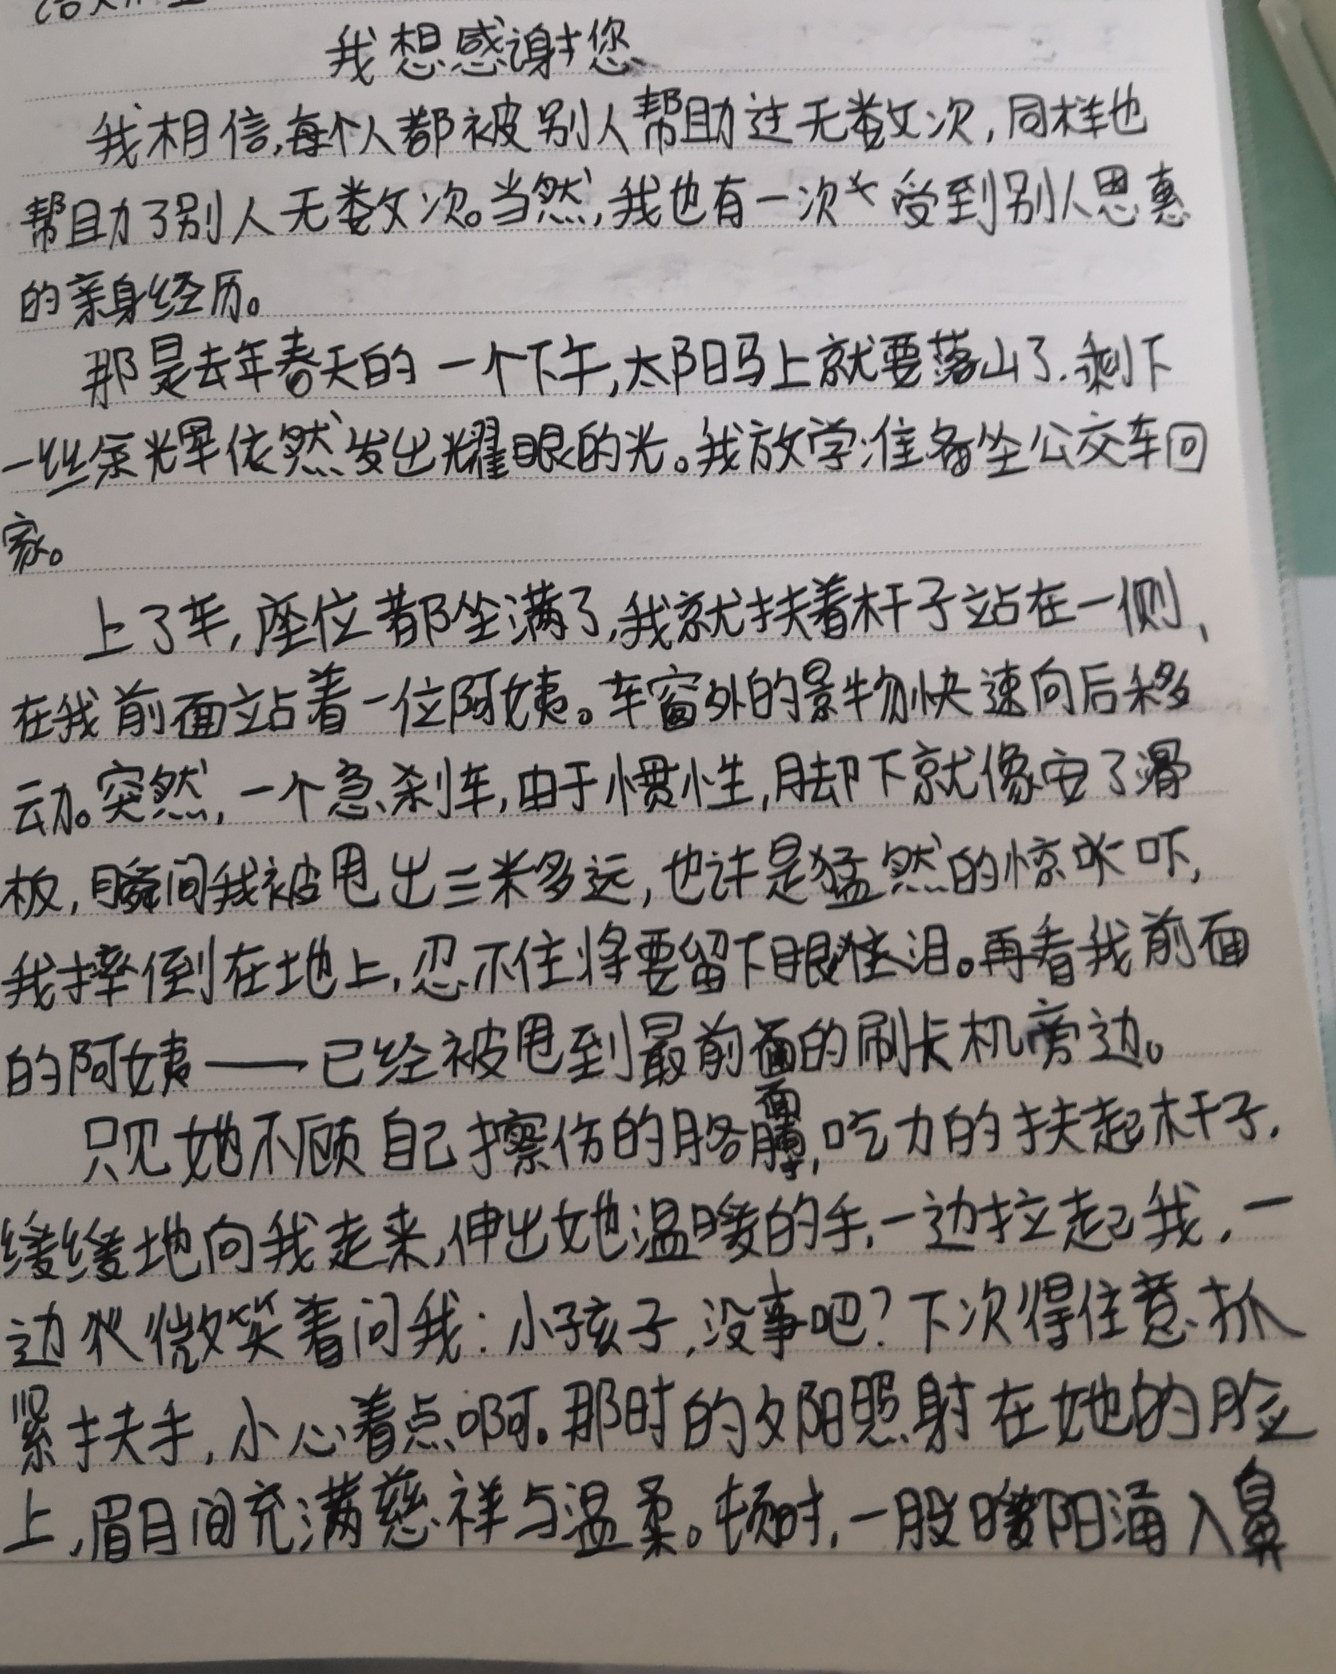 我想感谢您
我相信,每个人都被别人帮助过无数次,同样也
帮助了别人无数次。当然,我也有一次受到别人恩惠
的亲身经历。
那是去年春天的一个下午,太阳马上就要落山了.剩下
一丝余辉依然发出耀眼的光。我放学准备坐公交车回
家。
上了车,座位都坐满了,我就扶着杆子站在一侧,
在我前面站着一位阿姨。车窗外的景物快速向后移
动。突然,一个急刹车,由于惯性,脚下就像安了滑
板,瞬间我被甩出三米多远,也许是猛然的惊吓,
我摔倒在地上,忍不住将要留下眼泪。再看我前面
的阿姨——已经被甩到最前面的刷卡机旁边。
只见她不顾自己擦伤的胳膊,吃力的扶起杆子,
缓缓地向我走来,伸出她温暖的手,一边拉起我,一
边微笑着问我:小孩子,没事吧?下次得住意抓
紧扶手,小心着点啊。那时的夕阳照射在她的脸
上,眉目间充满慈祥与温柔。顿时,一股暖阳涌入鼻